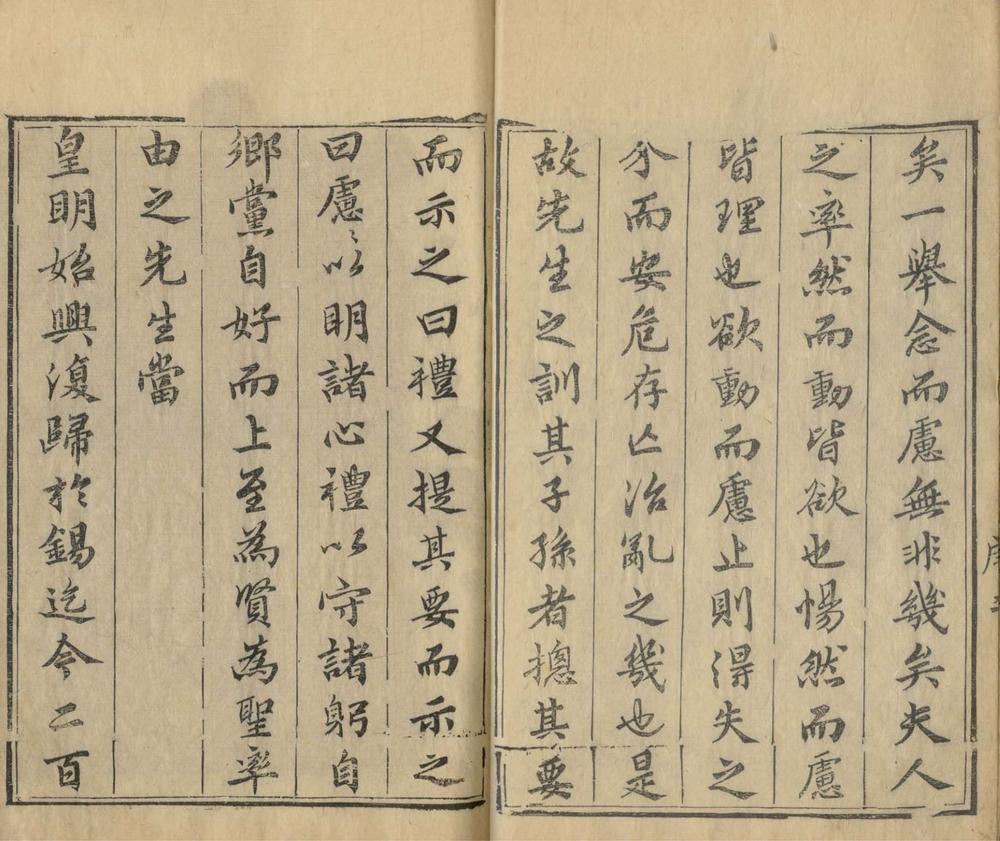 矣一舉念而慮無非幾矣夫人
之率然而動皆欲也惕然而慮
皆理也欲動而慮止則得失之
分而安危存亾治亂之幾也是
故先生之訓其子孫者摠其要
而示之曰禮又提其要而示之
曰慮〻以明諸心禮以守諸躬自
鄉黨自好而上至為賢為聖率
由之先生當
皇明始興復歸於錫迄今二百